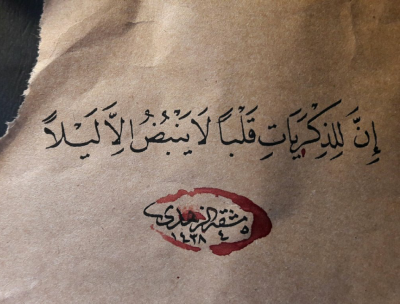 إِنَّ لِلذِكْرَيَاتِ قَلْباً لَا يَنْبُضُ الِاَّ لَيْلاً
مشقه الزهدي
١٤٣٨